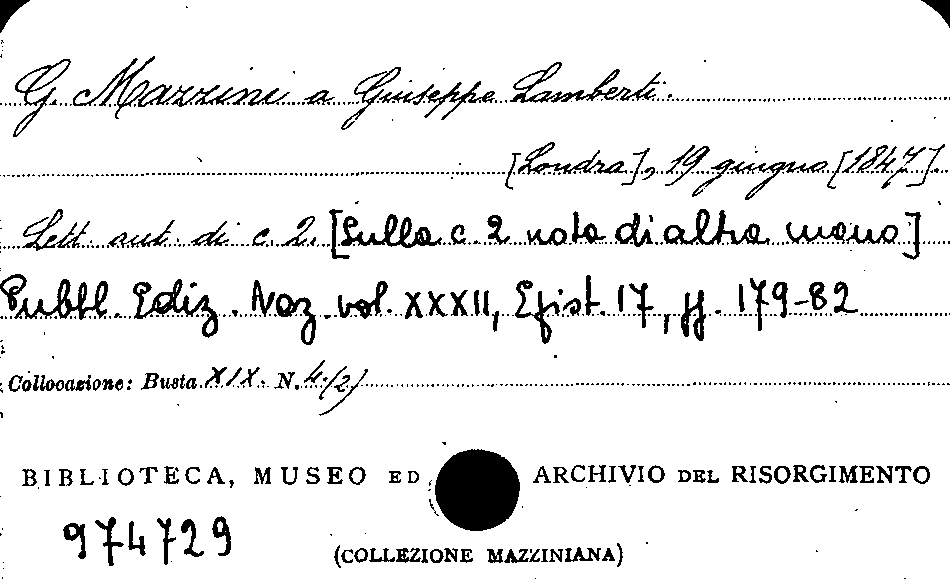 G. Mazzini a Giuseppe Lamberti.
[Londra], 19 giugno [1847].
Lett. aut. di c. 2. [Sulla c. 2 nota di altra mano]
Pubbl. Ediz. Naz. vol. XXXII, Epist. 17, pp. 179-82
Collocazione: Busta XIX. N. 4(2)
BIBLIOTECA, MUSEO ED ARCHIVIO DEL RISORGIMENTO
974729
(COLLEZIONE MAZZINIANA)